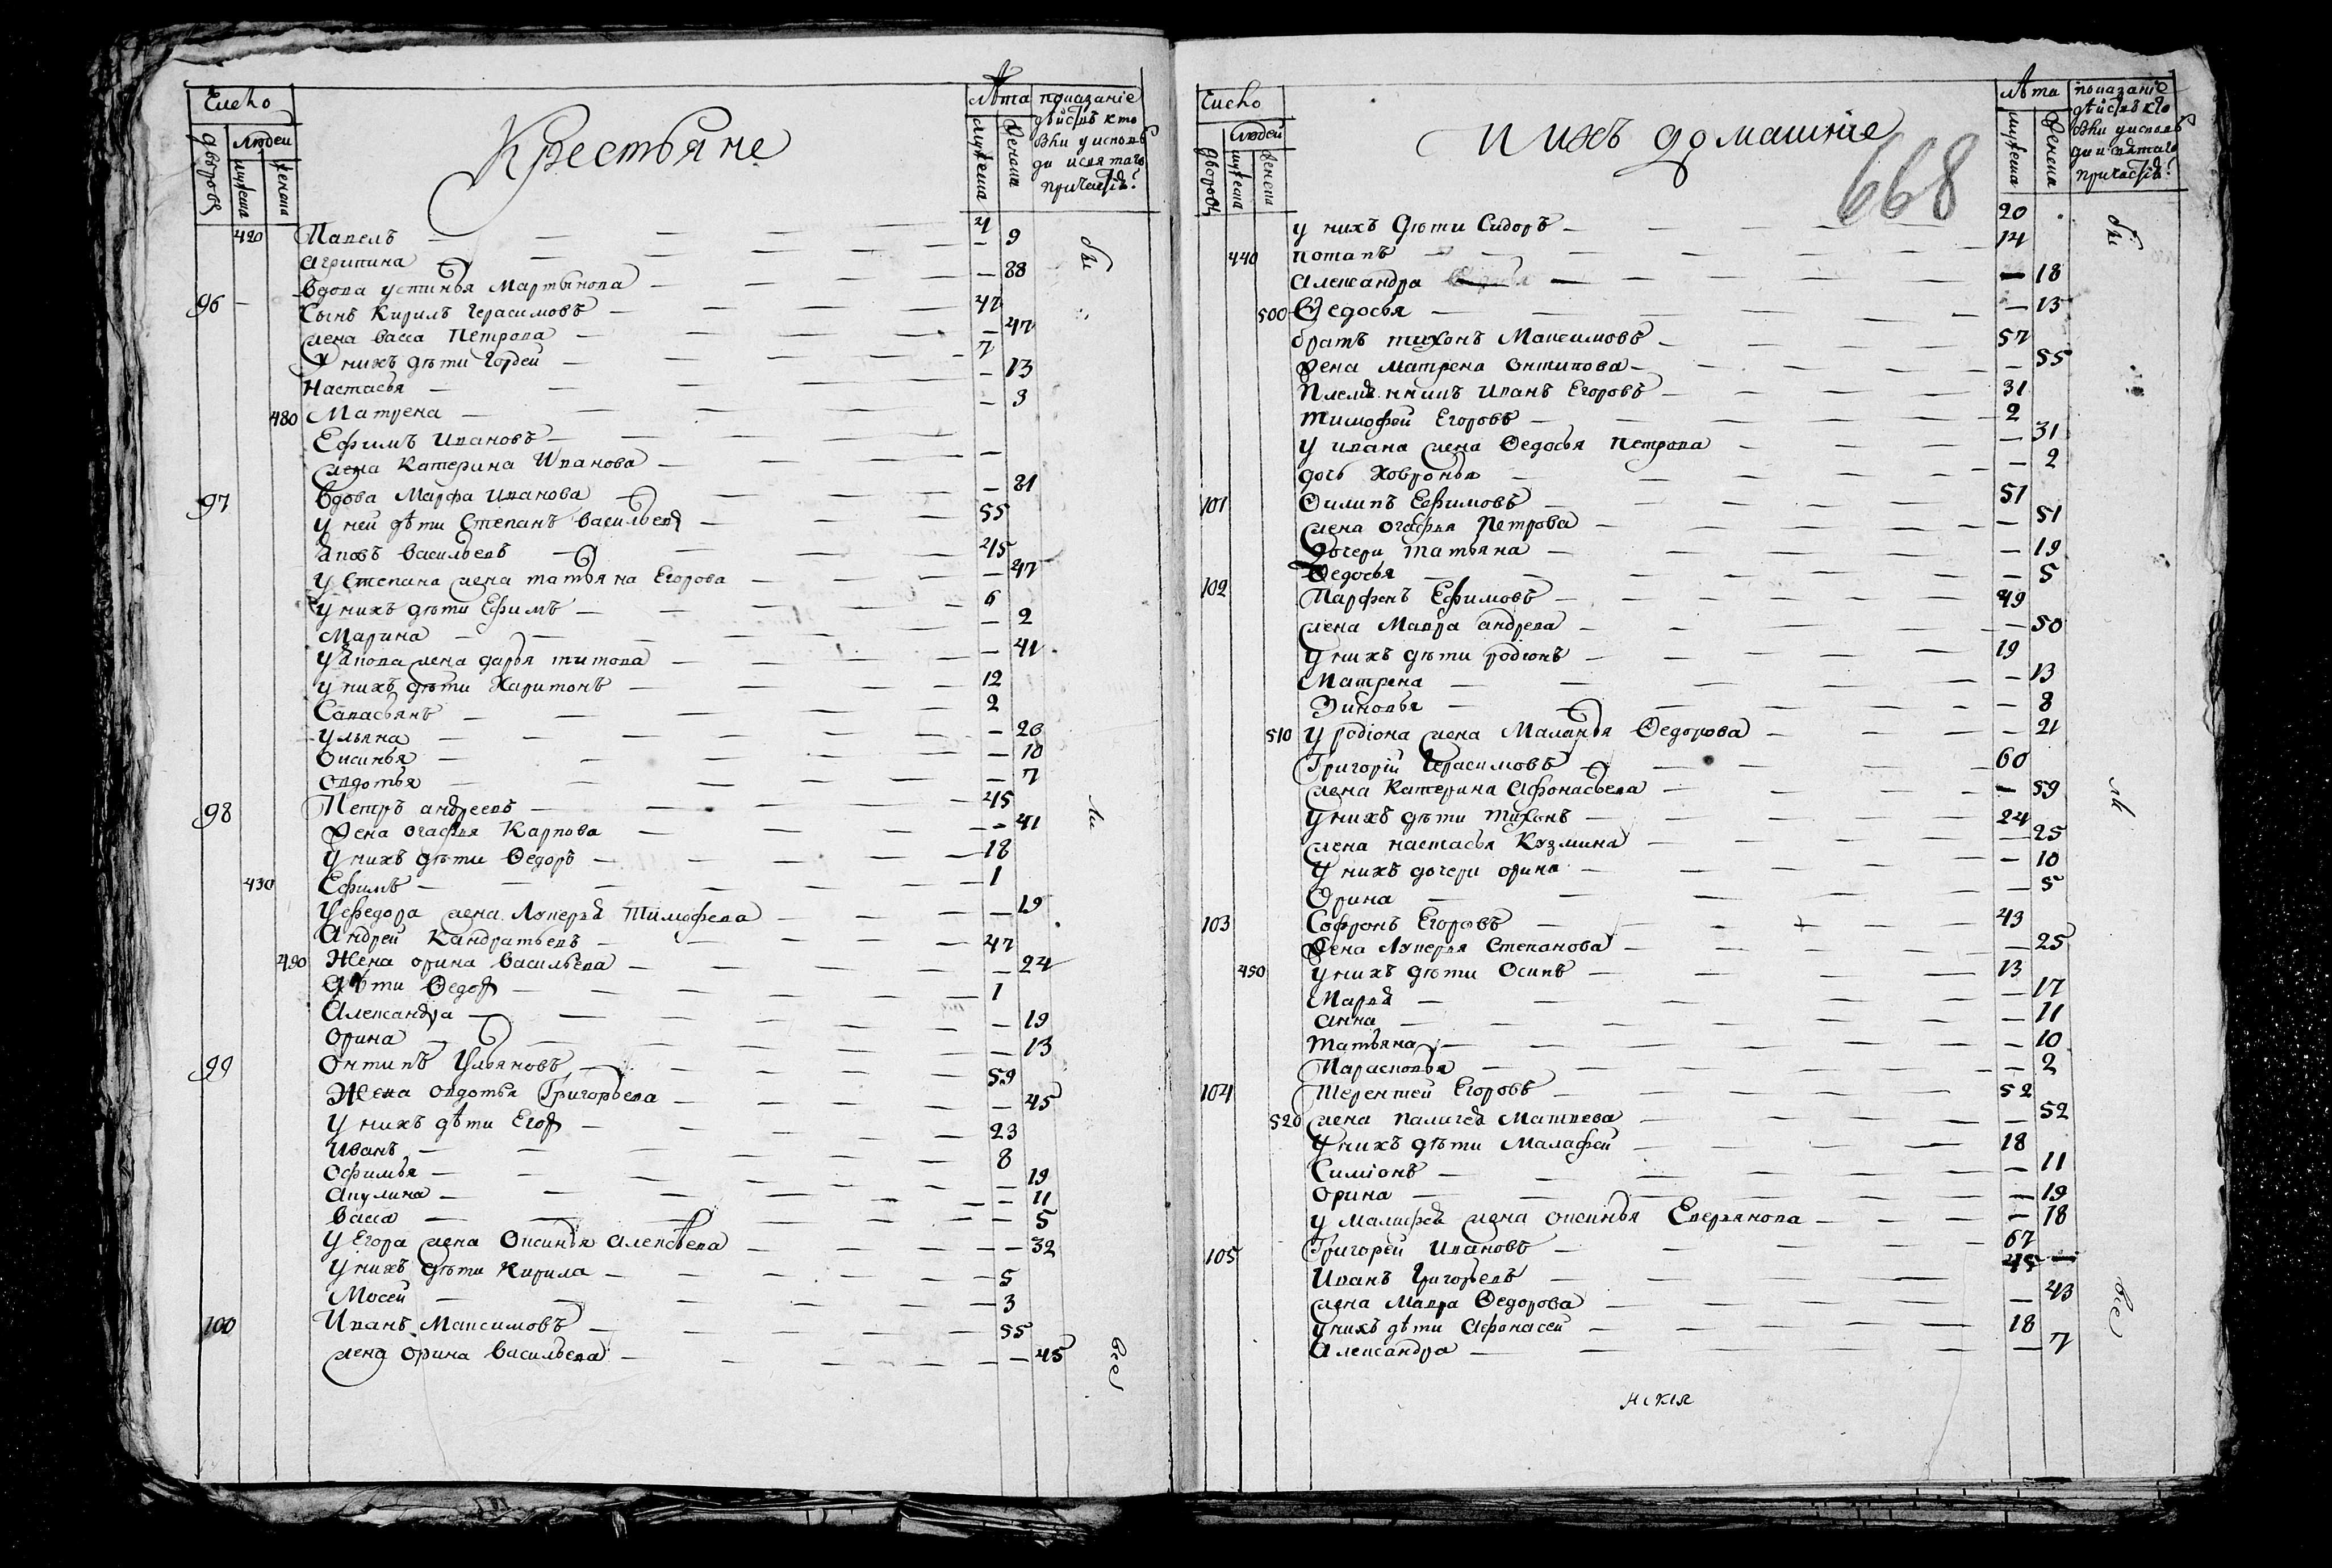 Число
Людей
дворовъ
мужеска
женска
Крестьяне
Лѣта
мужеска
женска
показаніе
дѣйств кто
были у исповѣ
ди и святаго
причастія
420 Павелъ — 4
Агрипина — 9
вдова устинья Мартынова — 88
96 Сынъ Кирилъ Герасимовъ — 47
жена васса Петрова — 47
У нихъ дѣти Гордей — 7
Настасья — 13
480 Матрена — 3
Ефимъ Ивановъ —
жена Катерина Иванова —
97 вдова Марфа Иванова — 81
у ней дѣти Степанъ васильевъ — 55
Яковъ васильевъ — 45
у Степана жена татьяна Егорова — 47
у нихъ дѣти Ефимъ — 6
Марина — 2
у Якова жена дарья титова — 41
у нихъ дѣти Харитонъ — 12
Савасьянъ — 2
ульяна — 20
Оксинья — 10
овдотья — 7
98 Петръ андреевъ — 45
жена огафья Карпова — 41
у нихъ дѣти Ѳедоръ — 18
430 Ефимъ — 1
У федора жена Лукерья Тимофева — 19
Андрей Кандратьевъ — 47
490 Жена орина васильева — 24
Дѣти Ѳедоръ — 1
Александра — 19
орина — 13
99 Онтипъ Ульяновъ — 59
Жена овдотья Григорьева — 45
У нихъ дѣти Егоръ — 23
Иванъ — 8
офимья — 19
Акулина — 11
васса — 5
У Егора жена Оксинья алексѣева — 32
У нихъ дѣти Кирила — 5
Мосей — 3
100 Иванъ Максимовъ — 55
жена орина васильева — 45
бы
ли
все
Число
людей
дворовъ
мужеска
женска
и ихъ домашніе
668
лѣта
мужеска
женска
показаніе
дѣйств кто
были у исповѣ
ди и святаго
причастія
у нихъ дѣти Сидоръ — 20
440 потапъ — 14
Александра — 18
500 Ѳедосья — 13
братъ тихонъ Максимовъ — 57
жена матрена онтипова — 55
Племянникъ Иванъ Егоровъ — 31
тимофей Егоровъ — 2
у ивана жена Ѳедосья Петрова — 31
дочь Ховронья — 2
101 Ѳилипъ Ефимовъ — 51
жена огафья Петрова — 51
Дочери татьяна — 19
Ѳедосья — 5
102 Парфенъ Ефимовъ — 49
жена Мавра андрева — 50
у нихъ дѣти родіонъ — 19
Матрена — 13
Зиновья — 8
510 у родіона жена Маланья Ѳедорова — 21
Григорій Герасимовъ — 60
жена Катерина Афонасьева — 59
у нихъ дѣти тихонъ — 24
жена настасья Кузмина — 25
У нихъ дочери орина — 10
Орина — 5
103 Софронъ Егоровъ — 43
жена Лукерья Степанова — 25
450 у нихъ дѣти Осипъ — 13
Марья — 17
анна — 11
татьяна — 10
Парасковья — 2
104 Терентей Егоровъ — 52
520 жена палагея Матвева — 52
У нихъ дѣти Малафей — 18
Симіонъ — 11
орина — 19
у Малафея жена оксинья Еверьянова — 18
105 Григорей Ивановъ — 67
Иванъ Григорьевъ — 45
жена Мавра Ѳедорова — 43
у нихъ дѣти Афонасей — 18
Александра — 7
бы
ли
все